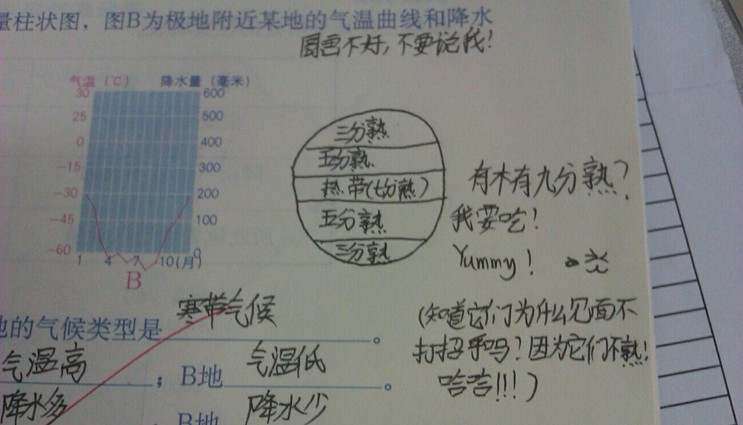 量柱状图，图B为极地附近某地的气温曲线和降水
圆画不好,不要说我!
气温（℃） 降水量（毫米）
30 600
25 500
0 400
-15 300
-30 200
-45 100
-60 0
1 4 7 10(月)
B
三分熟
五分熟
热带(七分熟)
五分熟
三分熟
有木有九分熟?
我要吃!
Yummy!
寒带气候
地的气候类型是 。
气温高 ；B地 气温低 。
降水多 ，B地 降水少
(知道它们为什么见面不
打招乎吗?因为它们不熟!
哈哈!!!)